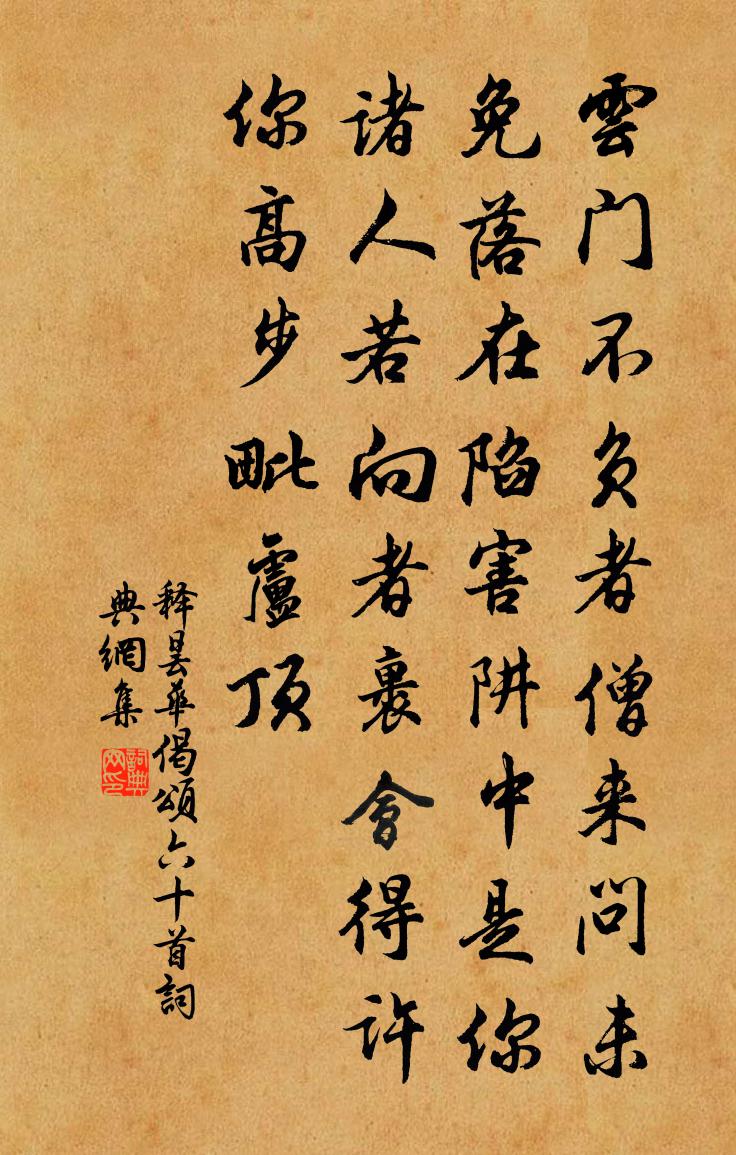 雲门不负者僧来问未
免落在陷害阱中是你
诸人若向者裹會得许
你高步毗盧顶
释曇華偈頌六十首詞
典網集
詞典网印